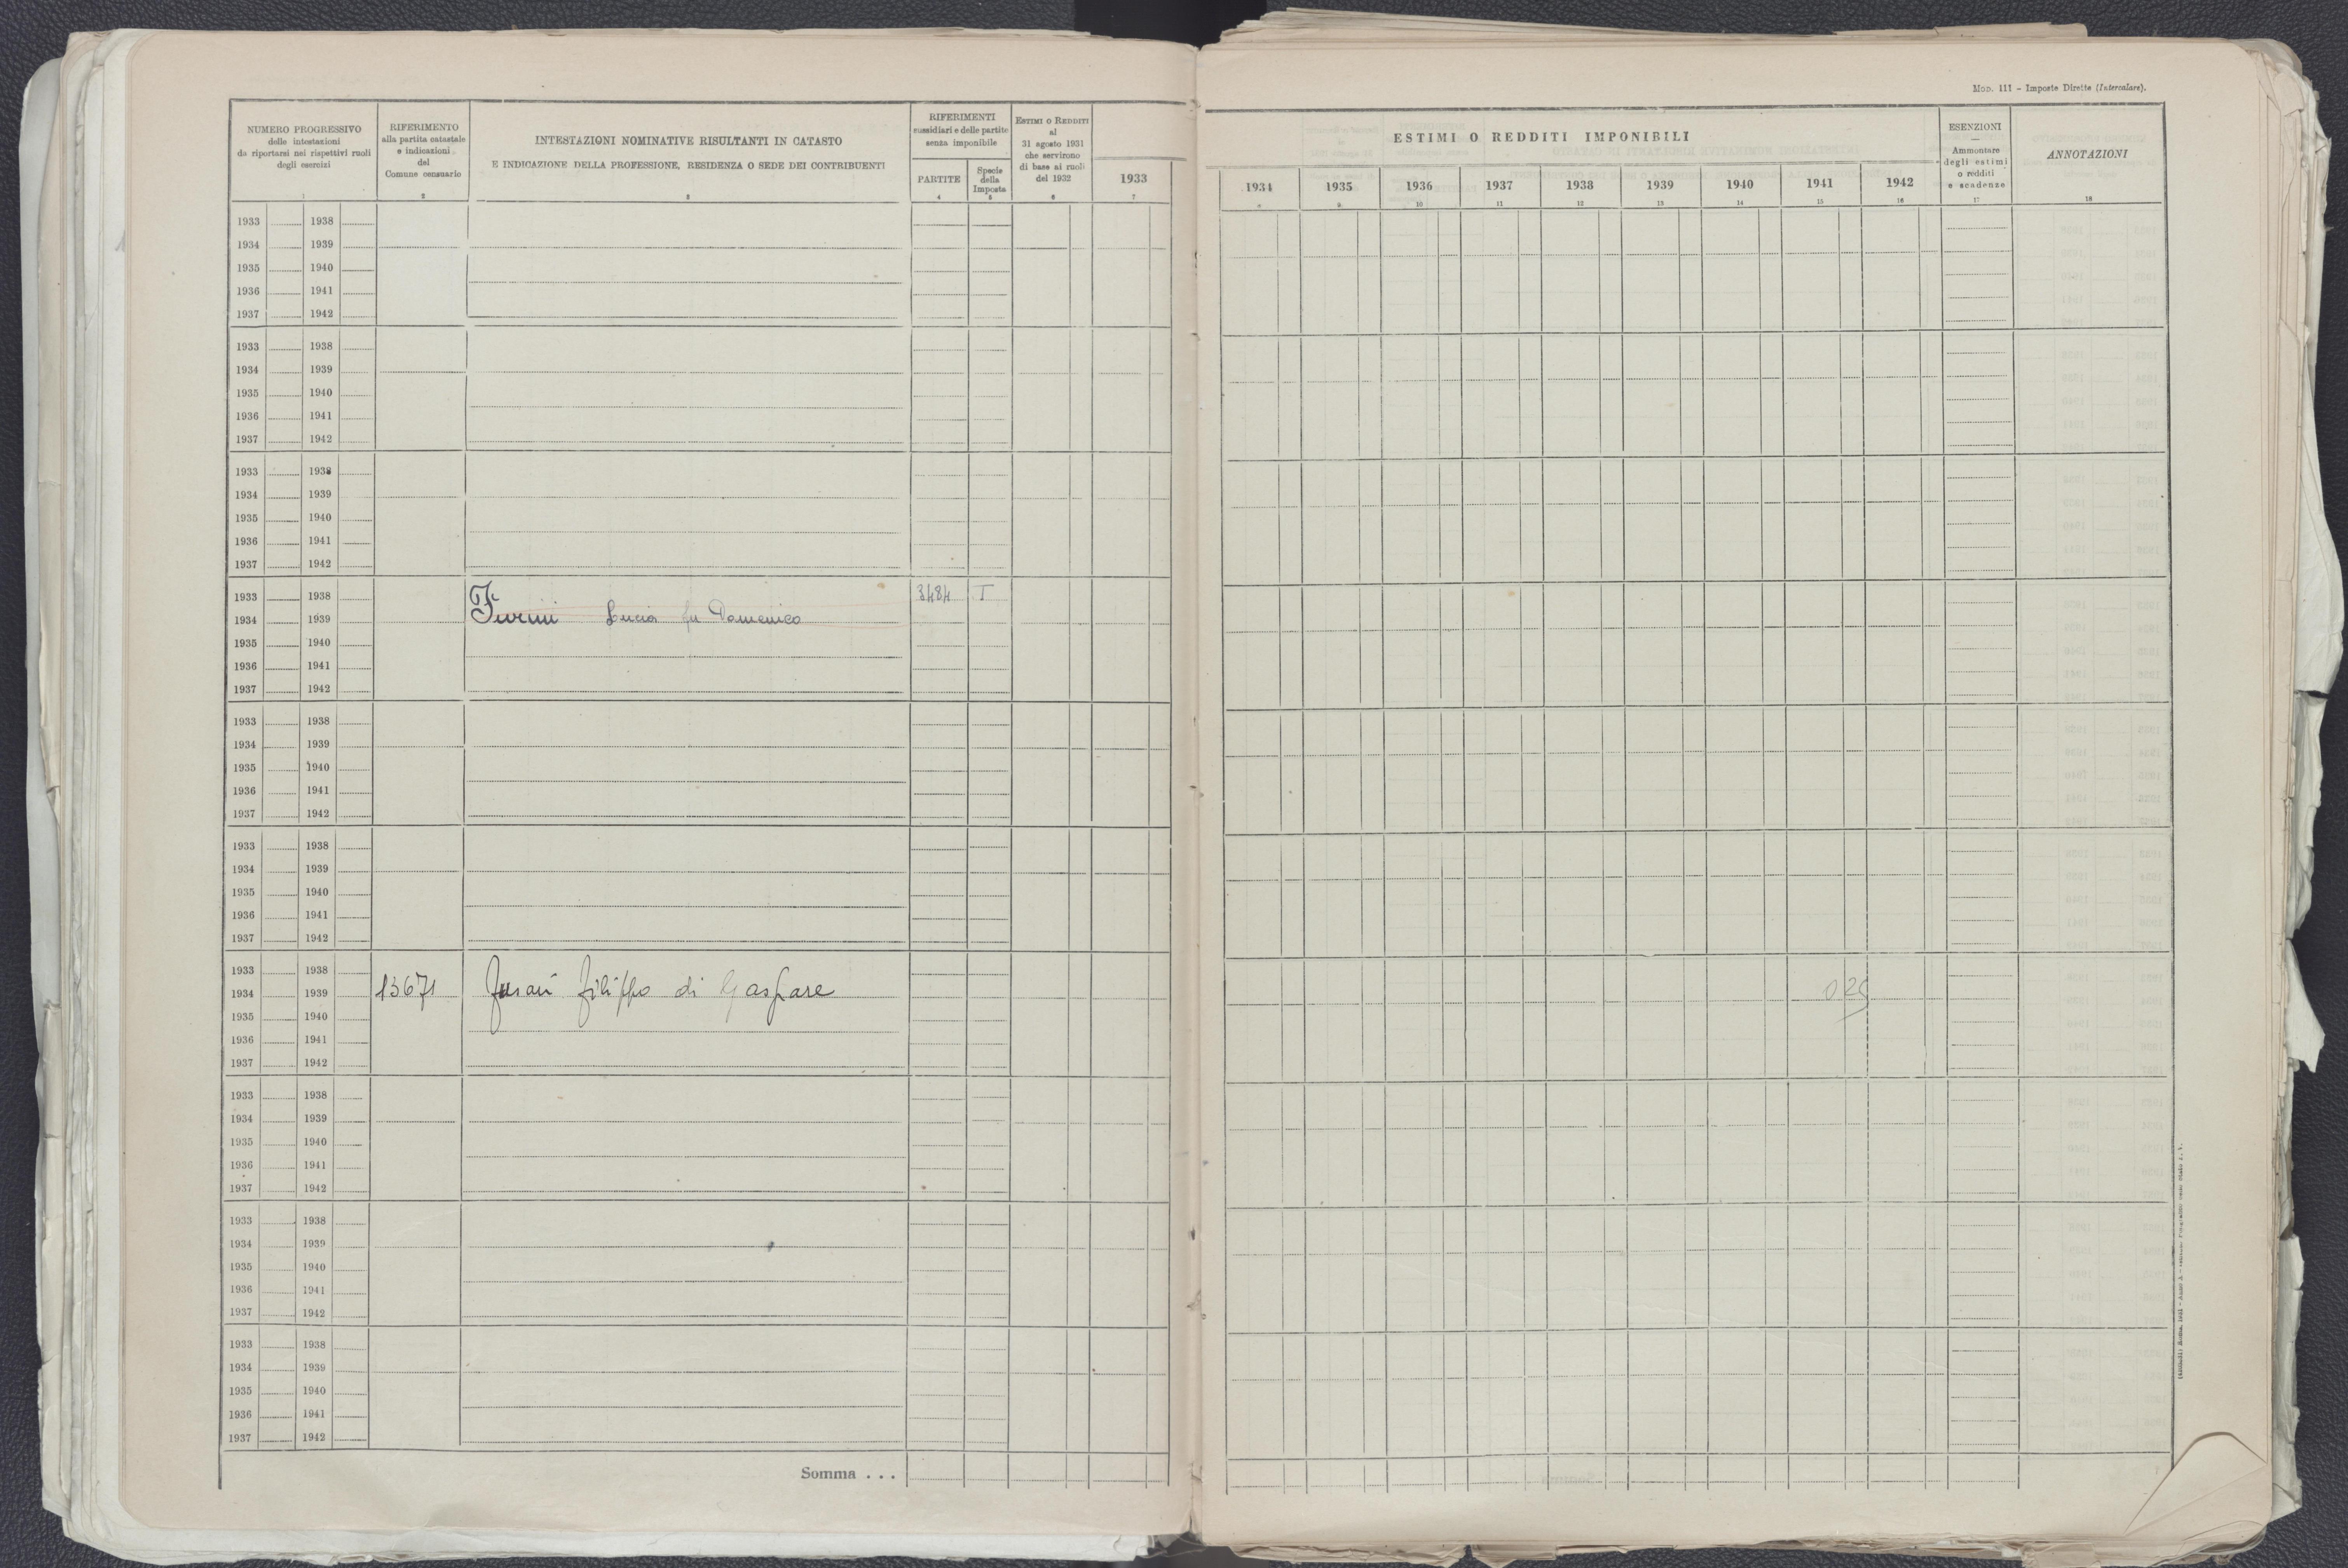 Mod. 111 - Imposte Dirette (Intercalare).
NUMERO PROGRESSIVO
delle intestazioni
da riportarsi nei rispettivi ruoli
degli esercizi
1
RIFERIMENTO
alla partita catastale
e indicazioni
del
Comune censuario
2
INTESTAZIONI NOMINATIVE RISULTANTI IN CATASTO
E INDICAZIONE DELLA PROFESSIONE, RESIDENZA O SEDE DEI CONTRIBUENTI
3
RIFERIMENTI
sussidiari e delle partite
senza imponibile
PARTITE
4
Specie
della
Imposta
5
ESTIMI O REDDITI
al
31 agosto 1931
che servirono
di base ai ruoli
del 1932
6
1933
7
ESTIMI O REDDITI IMPONIBILI
1934 1935 1936 1937 1938 1939 1940 1941 1942
9 10 11 12 13 14 15 16
ESENZIONI
Ammontare
degli estimi
o redditi
e scadenze
17
ANNOTAZIONI
18
1933 1938
1934 1939
1935 1940
1936 1941
1937 1942
1933 1938
1934 1939
1935 1940
1936 1941
1937 1942
1933 1938
1934 1939
1935 1940
1936 1941
1937 1942
1933 1938 3484 I
1934 1939 Lucia fu Domenico
1935 1940
1936 1941
1937 1942
1933 1938
1934 1939
1935 1940
1936 1941
1937 1942
1933 1938
1934 1939
1935 1940
1936 1941
1937 1942
1933 1938
1934 1939 13671 Filippo di Gaspare
1935 1940
1936 1941
1937 1942
1933 1938
1934 1939
1935 1940
1936 1941
1937 1942
1933 1938
1934 1939
1935 1940
1936 1941
1937 1942
1933 1938
1934 1939
1935 1940
1936 1941
1937 1942
Somma . . .